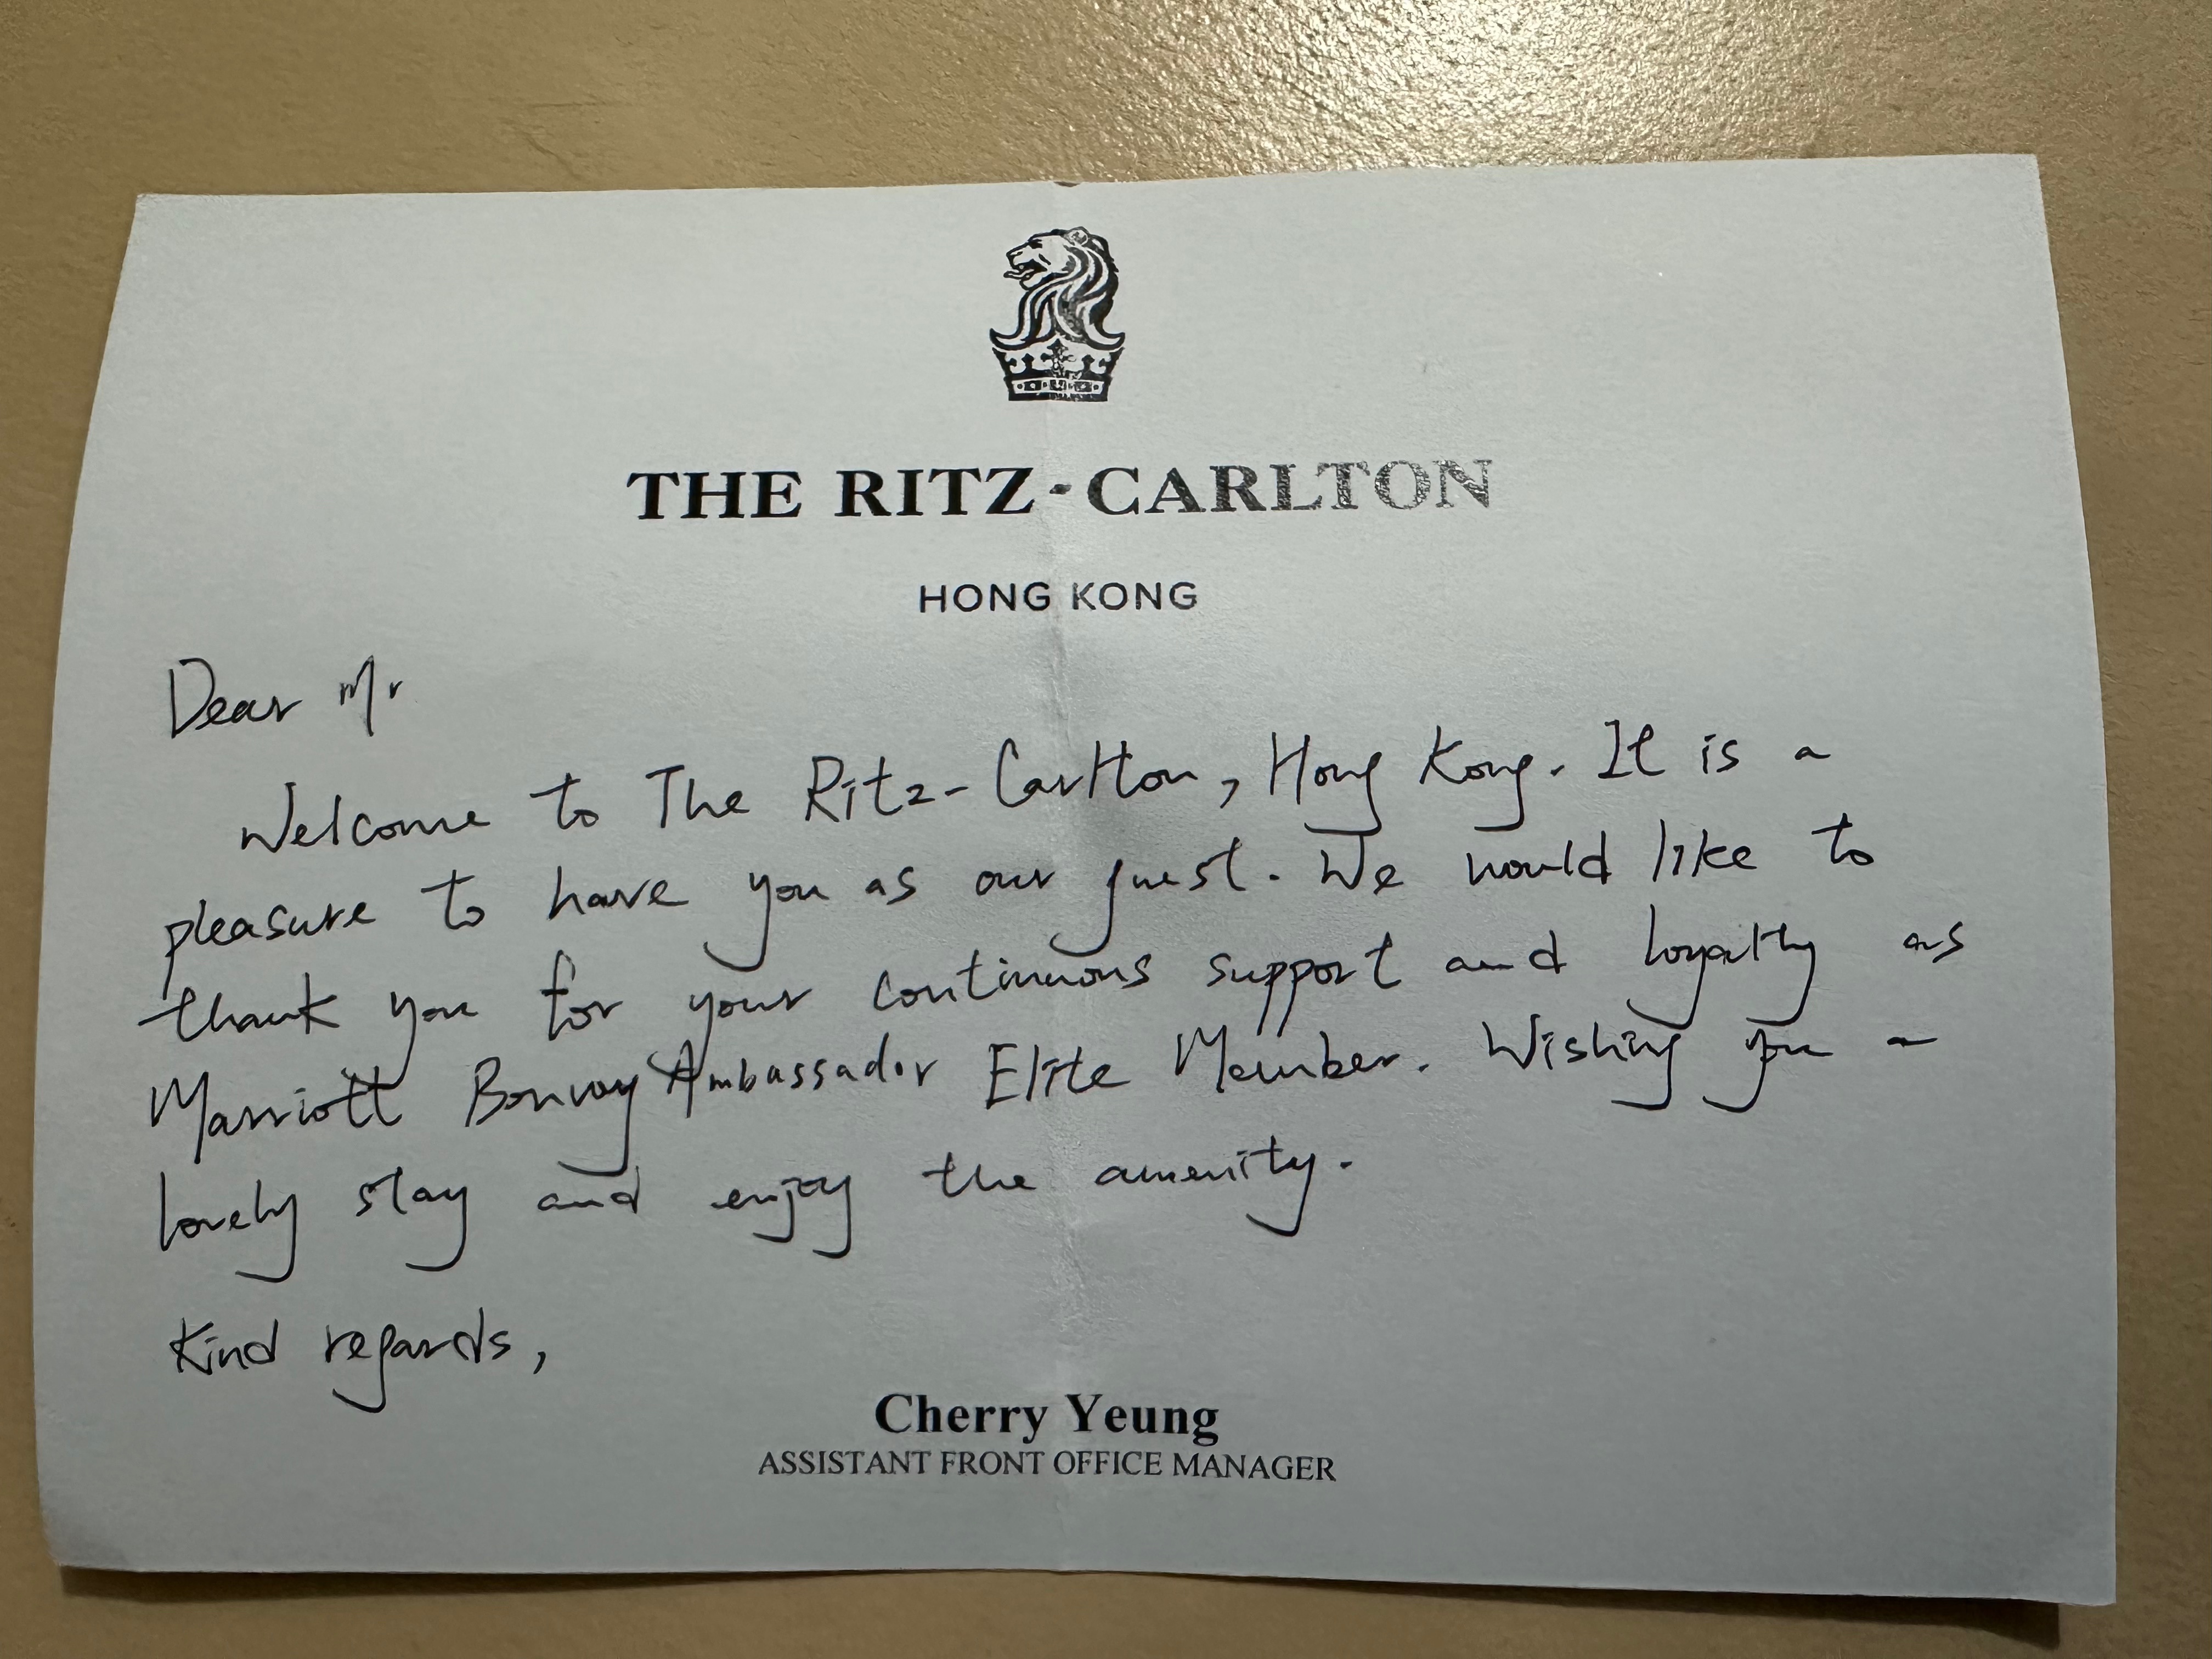 THE RITZ-CARLTON
HONG KONG
Dear Mr
Welcome to The Ritz-Carlton, Hong Kong. It is a
pleasure to have you as our guest. We would like to
thank you for your continuous support and loyalty as
Marriott Bonvoy Ambassador Elite Member. Wishing you a
lovely stay and enjoy the amenity.
Kind regards,
Cherry Yeung
ASSISTANT FRONT OFFICE MANAGER